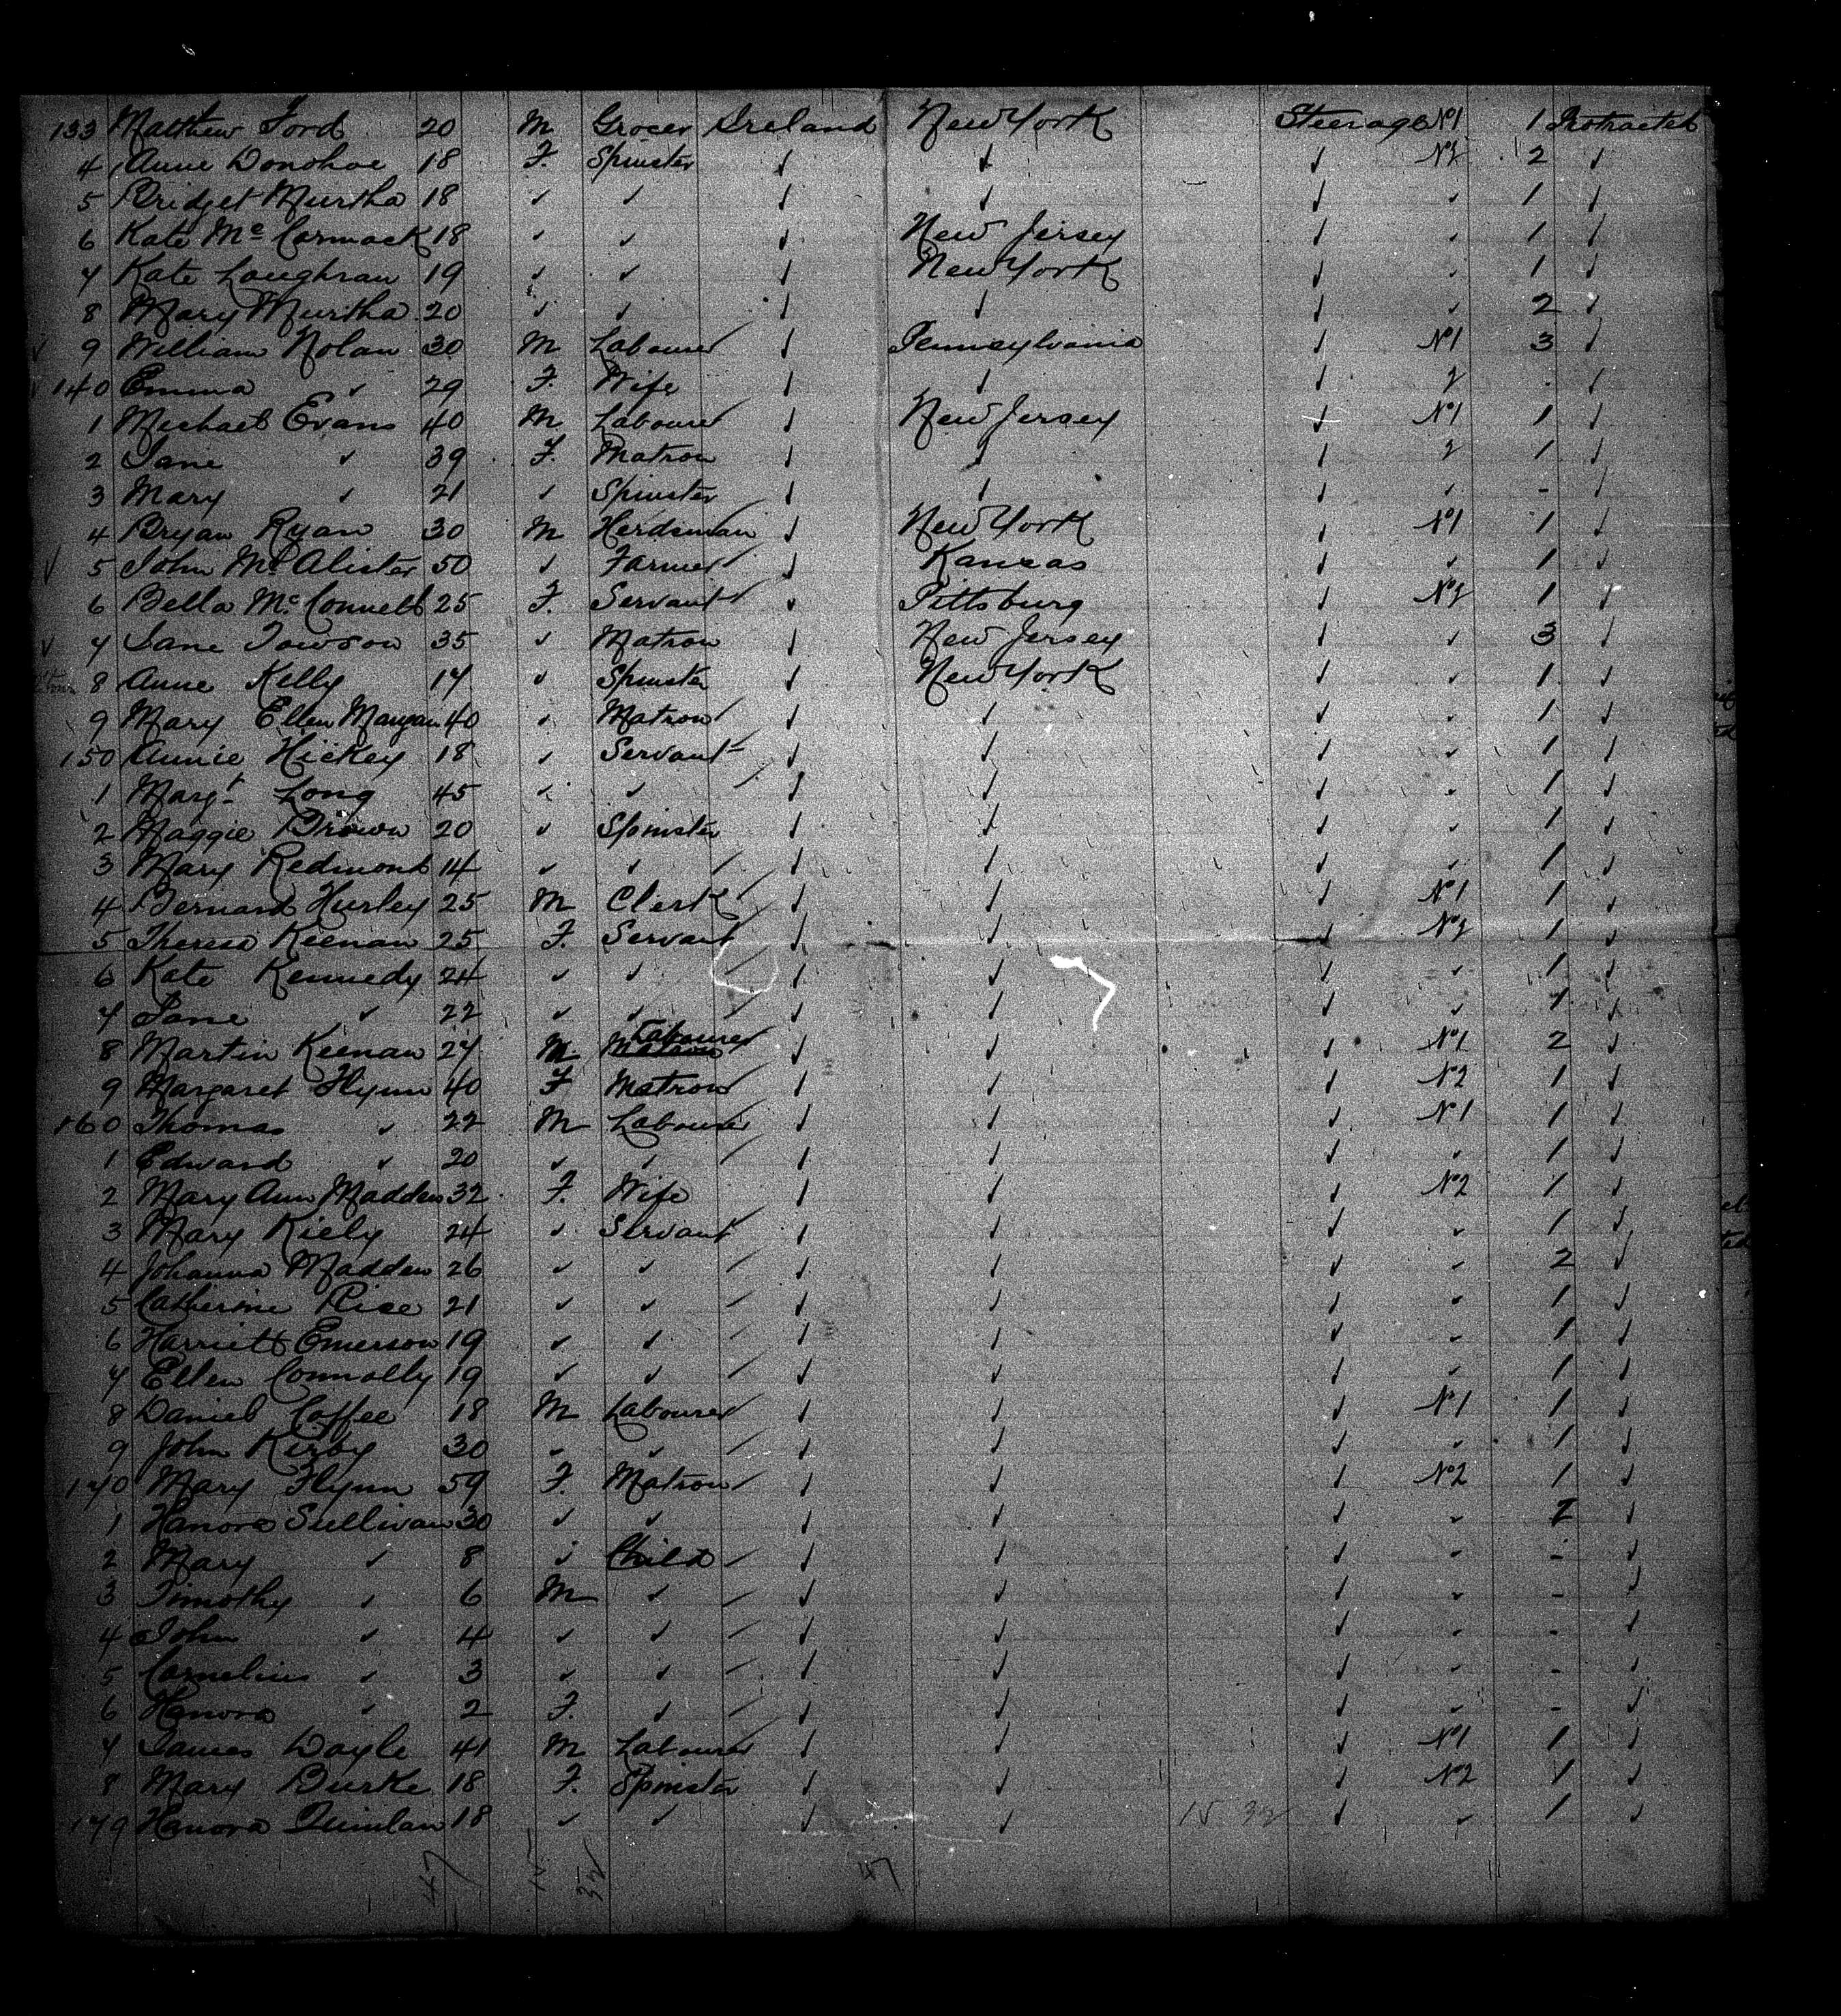 133 Matthew Ford 20 M Grocer Ireland New York Steerage No1 1 Protracted
4 Anne Donohoe 18 F. Spinster ✓ ✓ ✓ No2 2 ✓
5 Bridget Murtha 18 ✓ ✓ ✓ ✓ ✓ ✓ 1 ✓
6 Kate Mc Cormack 18 ✓ ✓ ✓ New Jersey ✓ ✓ 1 ✓
7 Kate Loughran 19 ✓ ✓ ✓ New York ✓ ✓ 1 ✓
8 Mary Murtha 20 ✓ ✓ ✓ ✓ ✓ ✓ 2 ✓
✓ 9 William Nolan 30 M Labourer ✓ Pennsylvania ✓ No1 3 ✓
140 Emma ✓ 29 F. Wife ✓ ✓ ✓ 2 - ✓
1 Michael Evans 40 M Labourer ✓ New Jersey ✓ No1 1 ✓
2 Jane ✓ 39 F. Matron ✓ ✓ ✓ 2 1 ✓
3 Mary ✓ 21 ✓ Spinster ✓ ✓ ✓ ✓ - ✓
4 Bryan Ryan 30 M Herdsman ✓ New York ✓ No1 1 ✓
✓ 5 John Mc Alister 50 ✓ Farmer ✓ Kansas ✓ ✓ 1 ✓
6 Bella Mc Connell 25 F. Servant ✓ Pittsburg ✓ No2 1 ✓
✓ 7 Jane Towson 35 ✓ Matron ✓ New Jersey ✓ ✓ 3 ✓
8 Anne Kelly 17 ✓ Spinster ✓ New York ✓ ✓ 1 ✓
9 Mary Ellen Mangan 40 ✓ Matron ✓ ✓ ✓ ✓ 1 ✓
150 Annie Hickey 18 ✓ Servant ✓ ✓ ✓ ✓ 1 ✓
1 Margt Long 45 ✓ ✓ ✓ ✓ ✓ ✓ 1 ✓
2 Maggie Brown 20 ✓ Spinster ✓ ✓ ✓ ✓ 1 ✓
3 Mary Redmond 14 ✓ ✓ ✓ ✓ ✓ ✓ 1 ✓
4 Bernard Hurley 25 M Clerk ✓ ✓ ✓ No1 1 ✓
5 Theresa Keenan 25 F. Servant ✓ ✓ ✓ No2 1 ✓
6 Kate Kennedy 24 ✓ ✓ ✓ ✓ ✓ ✓ 1 ✓
7 Jane ✓ 22 ✓ ✓ ✓ ✓ ✓ ✓ 1 ✓
8 Martin Keenan 27 M Labourer ✓ ✓ ✓ No1 2 ✓
9 Margaret Flynn 40 F Matron ✓ ✓ ✓ No2 1 ✓
160 Thomas ✓ 22 M Labourer ✓ ✓ ✓ No1 1 ✓
1 Edward ✓ 20 ✓ ✓ ✓ ✓ ✓ ✓ 1 ✓
2 Mary Ann Madden 32 F. Wife ✓ ✓ ✓ No2 1 ✓
3 Mary Kiely 24 ✓ Servant ✓ ✓ ✓ ✓ 1 ✓
4 Johanna Madden 26 ✓ ✓ ✓ ✓ ✓ ✓ 2 ✓
5 Catherine Rice 21 ✓ ✓ ✓ ✓ ✓ ✓ 1 ✓
6 Harriett Emerson 19 ✓ ✓ ✓ ✓ ✓ ✓ 1 ✓
7 Ellen Connolly 19 ✓ ✓ ✓ ✓ ✓ ✓ 1 ✓
8 Daniel Coffee 18 M Labourer ✓ ✓ ✓ No1 1 ✓
9 John Kirby 30 ✓ ✓ ✓ ✓ ✓ ✓ 1 ✓
170 Mary Flynn 59 F. Matron ✓ ✓ ✓ No2 1 ✓
1 Hanora Sullivan 30 ✓ ✓ ✓ ✓ ✓ ✓ 2 ✓
2 Mary ✓ 8 ✓ Child ✓ ✓ ✓ ✓ - ✓
3 Timothy ✓ 6 M ✓ ✓ ✓ ✓ ✓ - ✓
4 John ✓ 4 ✓ ✓ ✓ ✓ ✓ ✓ - ✓
5 Cornelius ✓ 3 ✓ ✓ ✓ ✓ ✓ ✓ - ✓
6 Hanora ✓ 2 F. ✓ ✓ ✓ ✓ ✓ - ✓
7 James Doyle 41 M Labourer ✓ ✓ ✓ No1 1 ✓
8 Mary Burke 18 F. Spinster ✓ ✓ ✓ No2 1 ✓
179 Hanora Quinlan 18 ✓ ✓ ✓ ✓ 15 32 ✓ ✓ 1 ✓
47 15 32